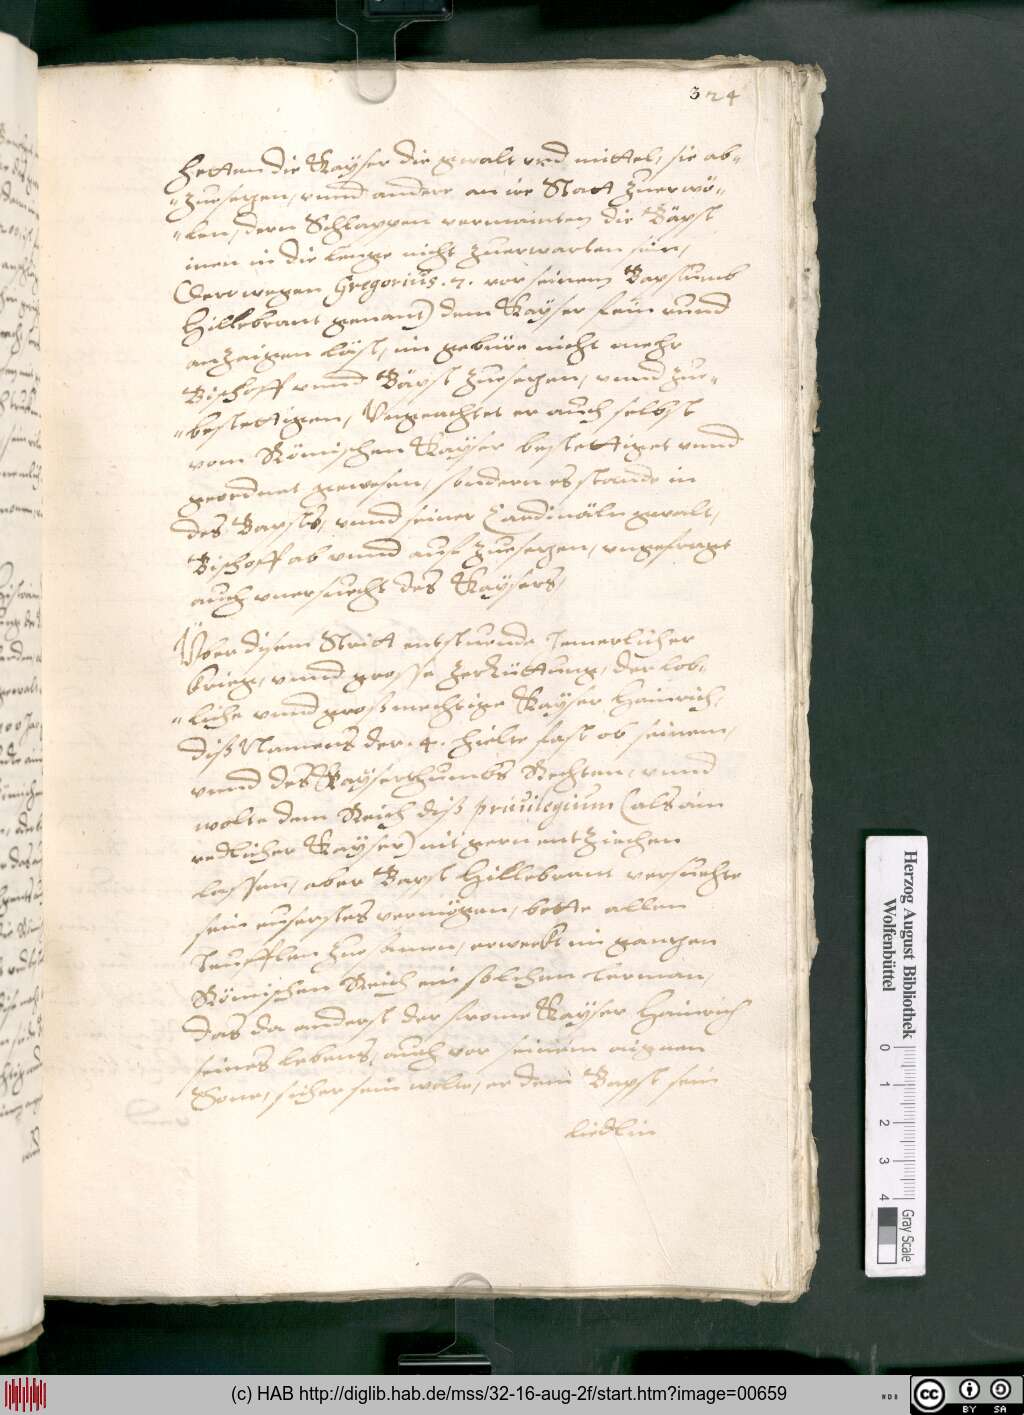 324
hetten die Kayser die gwalt vnd mittel, sie ab-
-zusetzen, vnnd andere an ire Statt zuerwö-
-len, dem Schlappen vermainten die Bäpst
inen in die lenge nicht zuerwarten sein,
(Derowegen Gregorius .7. vor seinem Bapstumb
Hillebrant genant) dem Kayser fein rund
anzaigen läst, im gebüre nicht mehr
Bischoff vnnd Bäpst zusetzen, vnnd zue-
-bestettigen, Vngeachtet er auch selbst
vom Römischen Kayser bestettiget vnnd
geordnet gewesen, sondern es stande in
des Bapsts, vnnd seiner Cardinäln gwalt,
Bischoff ab vnnd auf zuesetzen, vngefragt
auch vnersuecht des Kaysers,
Vber disem Stritt entstuende Jemerlicher
krieg, vnnd grosse zerrüttung, der lob-
-liche vnnd großmechtige Kayser Hainrich,
diß Namens der .4. hielte fast ob seinem,
vnnd des Kayserthumbs Rechten, vnnd
wolte dem Reich diß priuilegium (als ain
redlicher Kayser) nit gern entziechen
lassen, aber Bapst Hillebrant versuechte
sein eusserstes vermögen, bette allen
Teufflen zusamen, erweckt im gantzen
Römischen Reich ein solchen Lerman,
das da anderst der frome Kayser Hainrich
seines lebens, auch vor seinem aignen
Sone, sicher sein wolte, er dem Bapst sein
liedlin
Herzog August Bibliothek
Wolfenbüttel
0 1 2 3 4
Gray Scale
(c) HAB http://diglib.hab.de/mss/32-16-aug-2f/start.htm?image=00659
WDB
cc BY SA